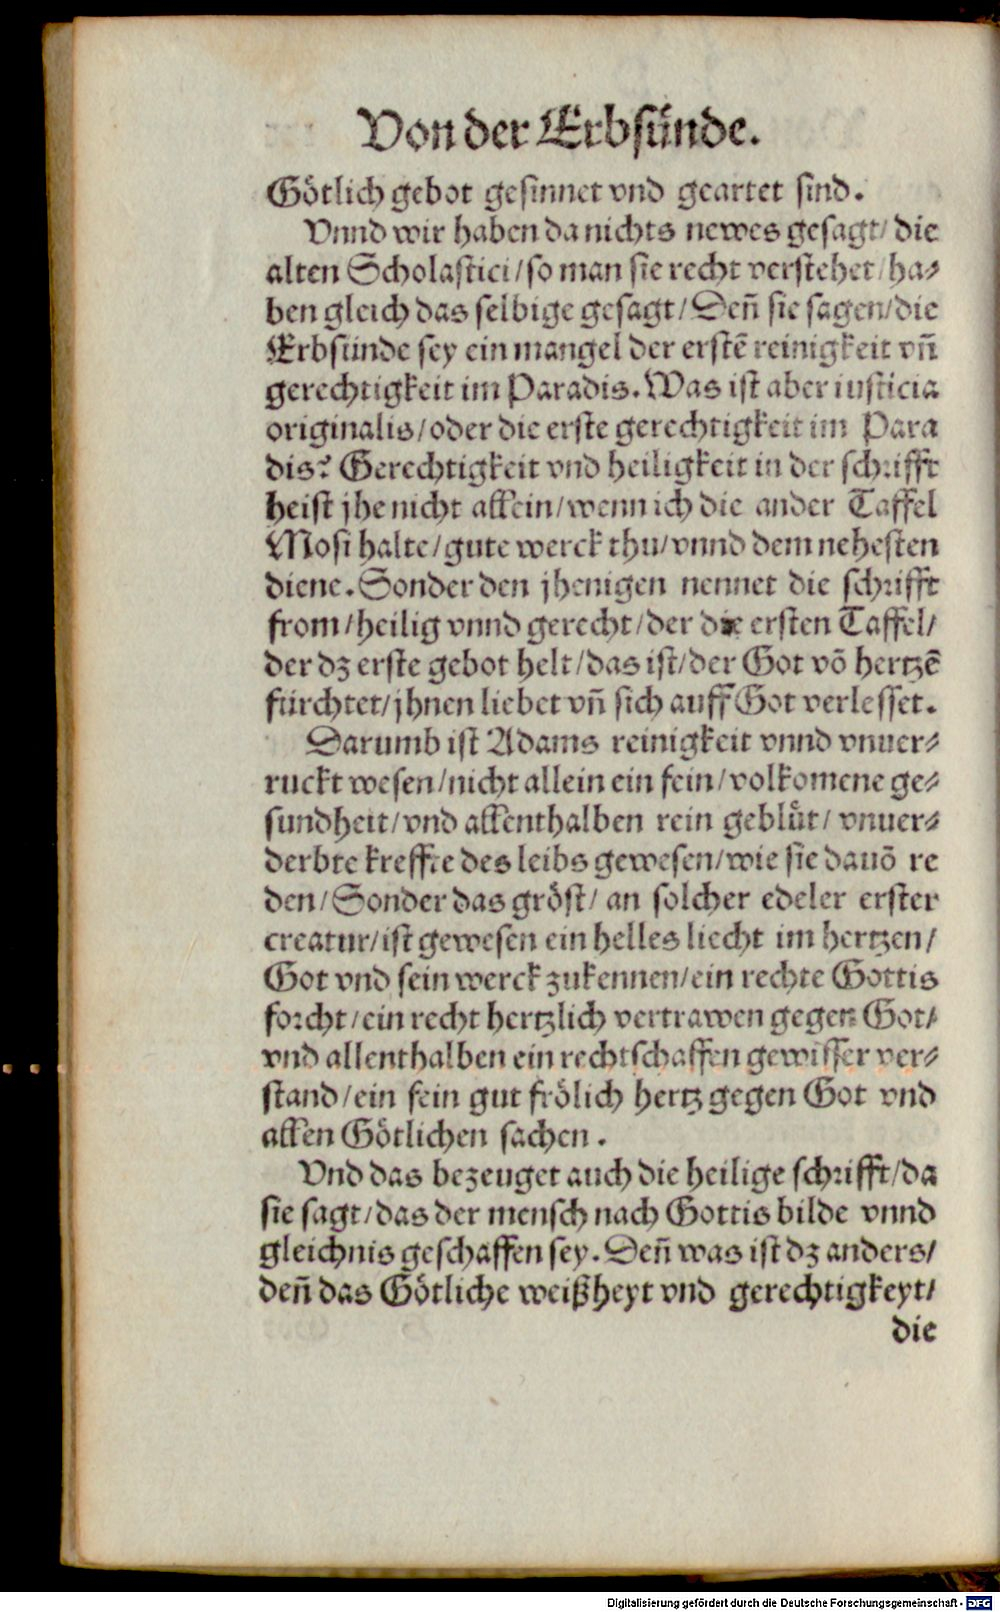 Von der Erbsünde.
Götlich gebot gesinnet vnd geartet sind.
Vnnd wir haben da nichts newes gesagt/ die
alten Scholastici/ so man sie recht verstehet/ ha-
ben gleich das selbige gesagt/ Deñ sie sagen/ die
Erbsünde sey ein mangel der erstẽ reinigkeit vñ
gerechtigkeit im Paradis. Was ist aber iusticia
originalis/ oder die erste gerechtigkeit im Para
dis? Gerechtigkeit vnd heiligkeit in der schrifft
heist jhe nicht allein/ wenn ich die ander Taffel
Mosi halte/ gute werck thu/ vnnd dem nehesten
diene. Sonder den jhenigen nennet die schrifft
from/ heilig vnnd gerecht/ der die ersten Taffel/
der dz erste gebot helt/ das ist/ der Got võ hertzẽ
fürchtet/ jhnen liebet vñ sich auff Got verlesset.
Darumb ist Adams reinigkeit vnnd vnuer-
ruckt wesen/ nicht allein ein fein/ volkomene ge-
sundheit/ vnd allenthalben rein geblüt/ vnuer-
derbte kreffte des leibs gewesen/ wie sie dauõ re
den/ Sonder das gröst/ an solcher edeler erster
creatur/ ist gewesen ein helles liecht im hertzen/
Got vnd sein werck zukennen/ ein rechte Gottis
forcht/ ein recht hertzlich vertrawen gegen Got/
vnd allenthalben ein rechtschaffen gewisser ver-
stand/ ein fein gut frölich hertz gegen Got vnd
allen Götlichen sachen.
Vnd das bezeuget auch die heilige schrifft/ da
sie sagt/ das der mensch nach Gottis bilde vnnd
gleichnis geschaffen sey. Deñ was ist dz anders/
deñ das Götliche weißheyt vnd gerechtigkeyt/
die
Digitalisierung gefördert durch die Deutsche Forschungsgemeinschaft - DFG